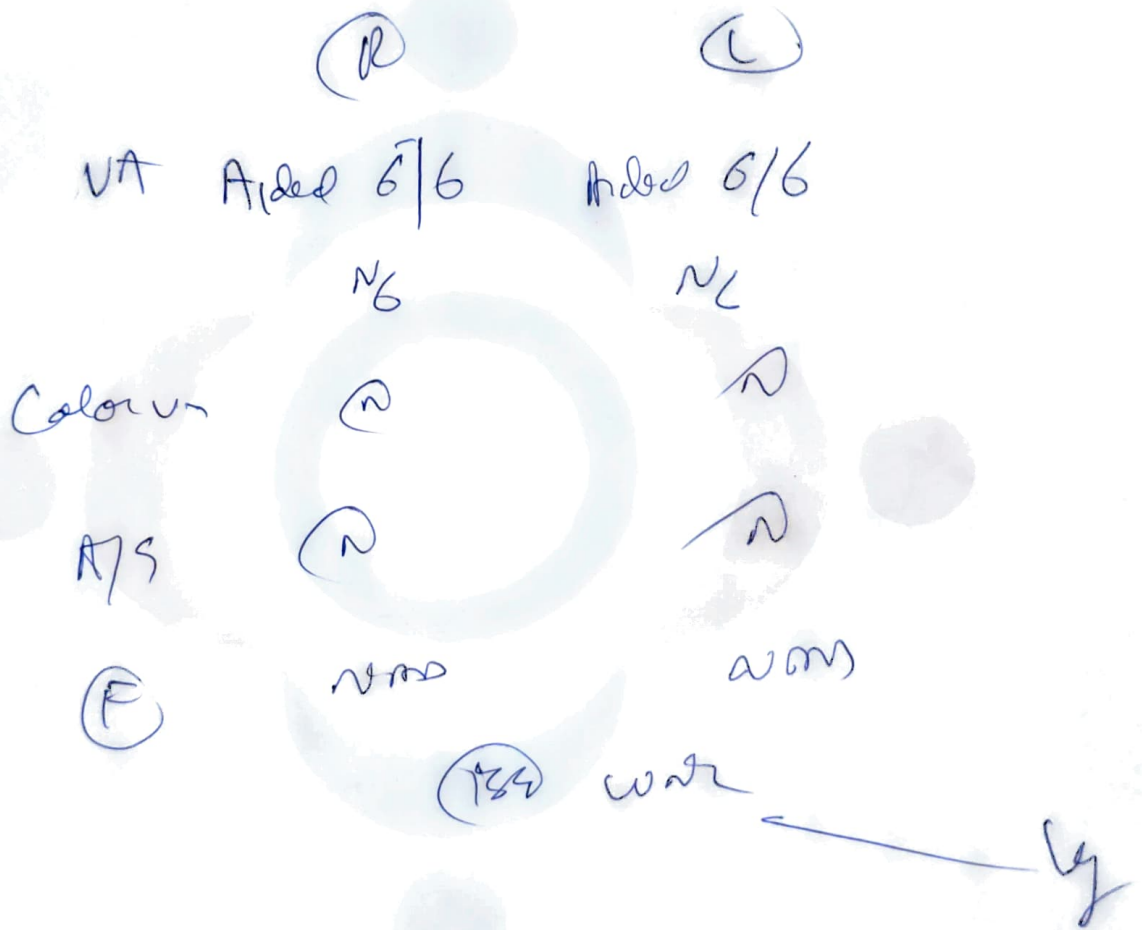 R L
VA Aided 6/6 Aided 6/6
N6 N6
Color vn N N
A/S N N
F NAD NAD